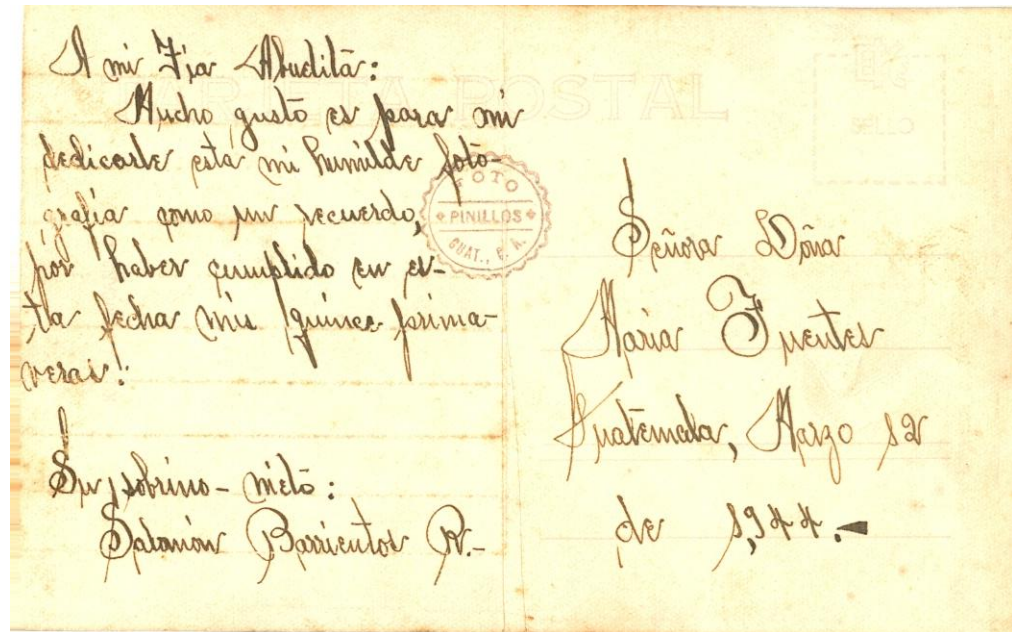 TARJETA POSTAL
A mi Tia Abuelita:
Mucho gusto es para mi
dedicarle esta mi humilde foto-
grafía como un recuerdo,
por haber cumplido en es-
ta fecha mis quince prima-
veras!
Su sobrino-nieto:
Salomón Barrientos R.-
FOTO
PINILLOS
GUAT., C. A.
SELLO
Señora Doña
Maria Fuentes
Guatemala, Marzo 12
de 1,944.